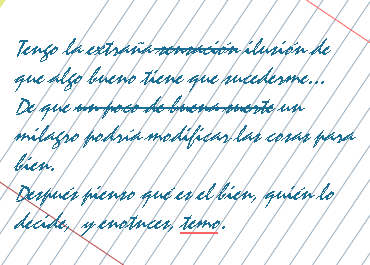 Tengo la extraña sensación ilusión de
que algo bueno tiene que sucederme...
De que un poco de buena suerte un
milagro podría modificar las cosas para
bien.
Después pienso qué es el bien, quién lo
decide, y enotnces, temo.